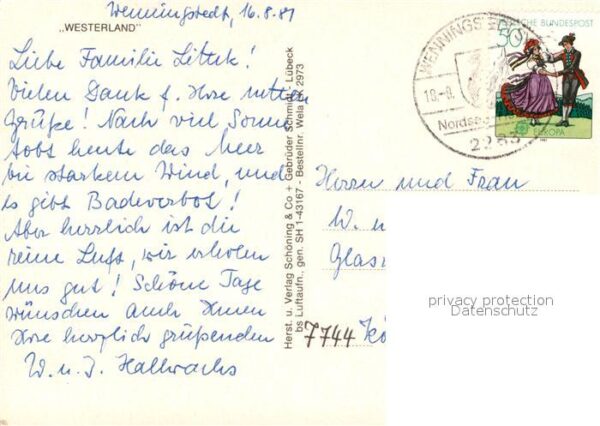 Wenningstedt, 16.8.81
„WESTERLAND"
Liebe Familie
Vielen Dank f. Ihre netten
Grüße! Nach viel Sonne
tobt heute das Meer
bei starkem Wind, und
es gibt Badeverbot!
Aber herrlich ist die
reine Luft, wir erholen
uns gut! Schöne Tage
wünschen auch Ihnen
Ihre herzlich grüßenden
W. u. I. Hallwachs
Herst. u. Verlag Schöning & Co + Gebrüder Schmidt, Lübeck
bs Luftaufn., gen. SH 1-43167 - Bestellnr. Wela K 2973
WENNINGS
18.-8.
Nordsee
2283
DEUTSCHE BUNDESPOST
50
EUROPA
Herrn und Frau
W. u
Glas
7744 Kö
privacy protection
Datenschutz